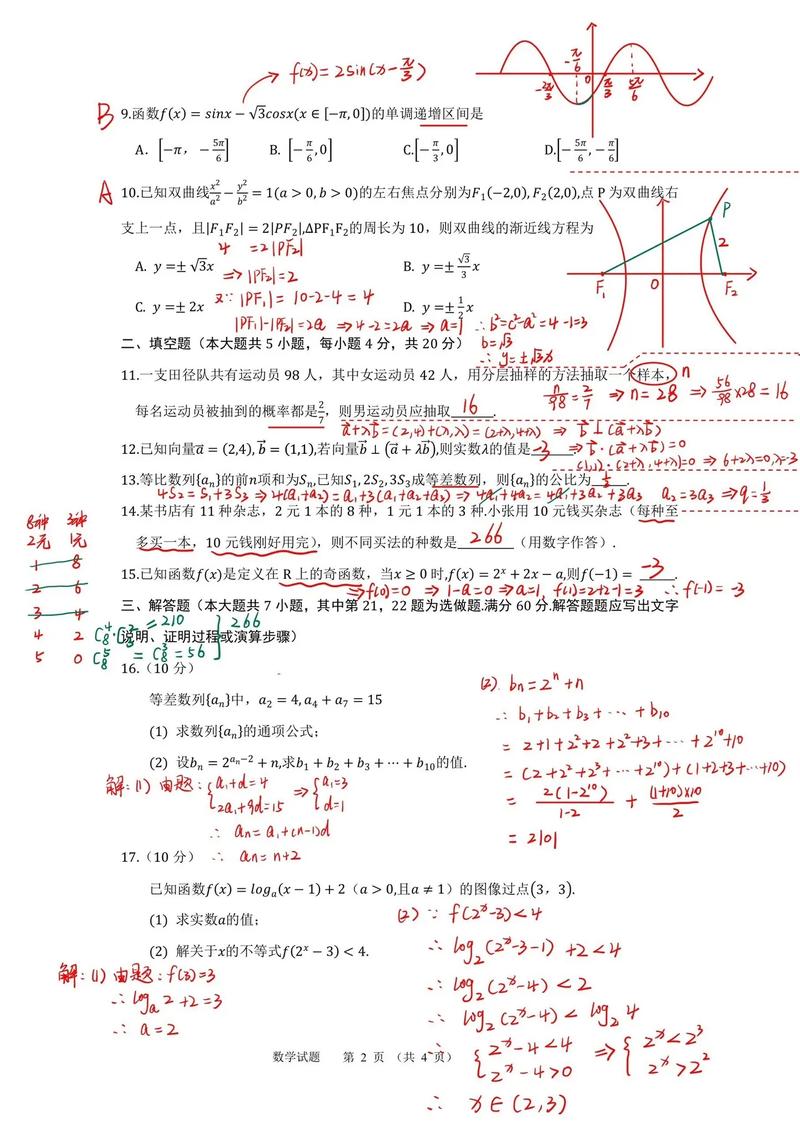 f(x)=2sin(x-π/3)
-π/6
-2π/3 0 π/3 5π/6
B 9.函数f(x)=sinx-√3cosx(x∈[-π,0])的单调递增区间是
A. [-π,-5π/6] B. [-π/6,0] C.[-π/3,0] D.[-5π/6,-π/6]
A 10.已知双曲线x²/a²-y²/b²=1(a>0,b>0)的左右焦点分别为F₁(-2,0),F₂(2,0),点 P 为双曲线右
支上一点，且|F₁F₂|=2|PF₂|,ΔPF₁F₂的周长为 10，则双曲线的渐近线方程为
4 =2|PF₂|
P
2
F₁ O F₂
A. y=±√3x B. y=±√3/3 x
⇒|PF₂|=2
C. y=±2x D. y=±1/2 x
又∵|PF₁|=10-2-4=4
|PF₁|-|PF₂|=2a ⇒4-2=2a ⇒a=1 ∴b²=c²-a²=4-1=3
b=√3
∴y=±√3x
二、填空题（本大题共 5 小题，每小题 4 分，共 20 分）
11.一支田径队共有运动员 98 人，其中女运动员 42 人，用分层抽样的方法抽取一个样本， n
n/98=2/7 ⇒n=28 ⇒56/98×28=16
每名运动员被抽到的概率都是2/7，则男运动员应抽取 16 .
a⃗+λb⃗=(2,4)+(λ,λ)=(2+λ,4+λ) ⇒ b⃗⊥(a⃗+λb⃗)
12.已知向量a⃗=(2,4),b⃗=(1,1),若向量b⃗⊥(a⃗+λb⃗),则实数λ的值是 -3 ⇒b⃗·(a⃗+λb⃗)=0
(1,1)·(2+λ,4+λ)=0 ⇒6+2λ=0,λ=-3
13.等比数列{aₙ}的前n项和为Sₙ,已知S₁,2S₂,3S₃成等差数列，则{aₙ}的公比为 1/3 .
4S₂=S₁+3S₃⇒4(a₁+a₂)=a₁+3(a₁+a₂+a₃)⇒4a₁+4a₂=4a₁+3a₂+3a₃ a₂=3a₃⇒q=1/3
14.某书店有 11 种杂志，2 元 1 本的 8 种，1 元 1 本的 3 种.小张用 10 元钱买杂志（每种至
多买一本，10 元钱刚好用完），则不同买法的种数是 266 （用数字作答）.
8种 3种
2元 1元
1 8
2 6
3 4
4 2 C₈⁴·C₃²=210
5 0 C₈⁵=C₈³=56
266
15.已知函数f(x)是定义在 R 上的奇函数，当x≥0 时,f(x)=2ˣ+2x-a,则f(-1)= -3 .
⇒f(0)=0 ⇒1-a=0⇒a=1, f(1)=2+2-1=3 ∴f(-1)=-3
三、解答题（本大题共 7 小题，其中第 21，22 题为选做题.满分 60 分.解答题应写出文字
说明、证明过程或演算步骤）
16.（10 分）
等差数列{aₙ}中，a₂=4,a₄+a₇=15
(1) 求数列{aₙ}的通项公式；
(2) 设bₙ=2^(aₙ-2)+n,求b₁+b₂+b₃+⋯+b₁₀的值.
解:(1) 由题: {a₁+d=4 ⇒{a₁=3
2a₁+9d=15 d=1
∴ aₙ=a₁+(n-1)d
∴ aₙ=n+2
(2). bₙ=2ⁿ+n
∴ b₁+b₂+b₃+⋯+b₁₀
=2+1+2²+2+2³+3+⋯+2¹⁰+10
=(2+2²+2³+⋯+2¹⁰)+(1+2+3+⋯+10)
=2(1-2¹⁰)/(1-2)+(1+10)×10/2
=2101
17.（10 分）
已知函数f(x)=logₐ(x-1)+2（a>0,且a≠1）的图像过点(3，3).
(1) 求实数a的值；
(2) 解关于x的不等式f(2ˣ-3)<4.
解:(1) 由题: f(3)=3
∴logₐ2+2=3
∴ a=2
(2) ∵ f(2ˣ-3)<4
∴ log₂(2ˣ-3-1)+2<4
∴ log₂(2ˣ-4)<2
∴ log₂(2ˣ-4)<log₂4
∴ {2ˣ-4<4 ⇒{2ˣ<2³
2ˣ-4>0 2ˣ>2²
∴ x∈(2,3)
数学试题 第 2 页 （共 4 页）